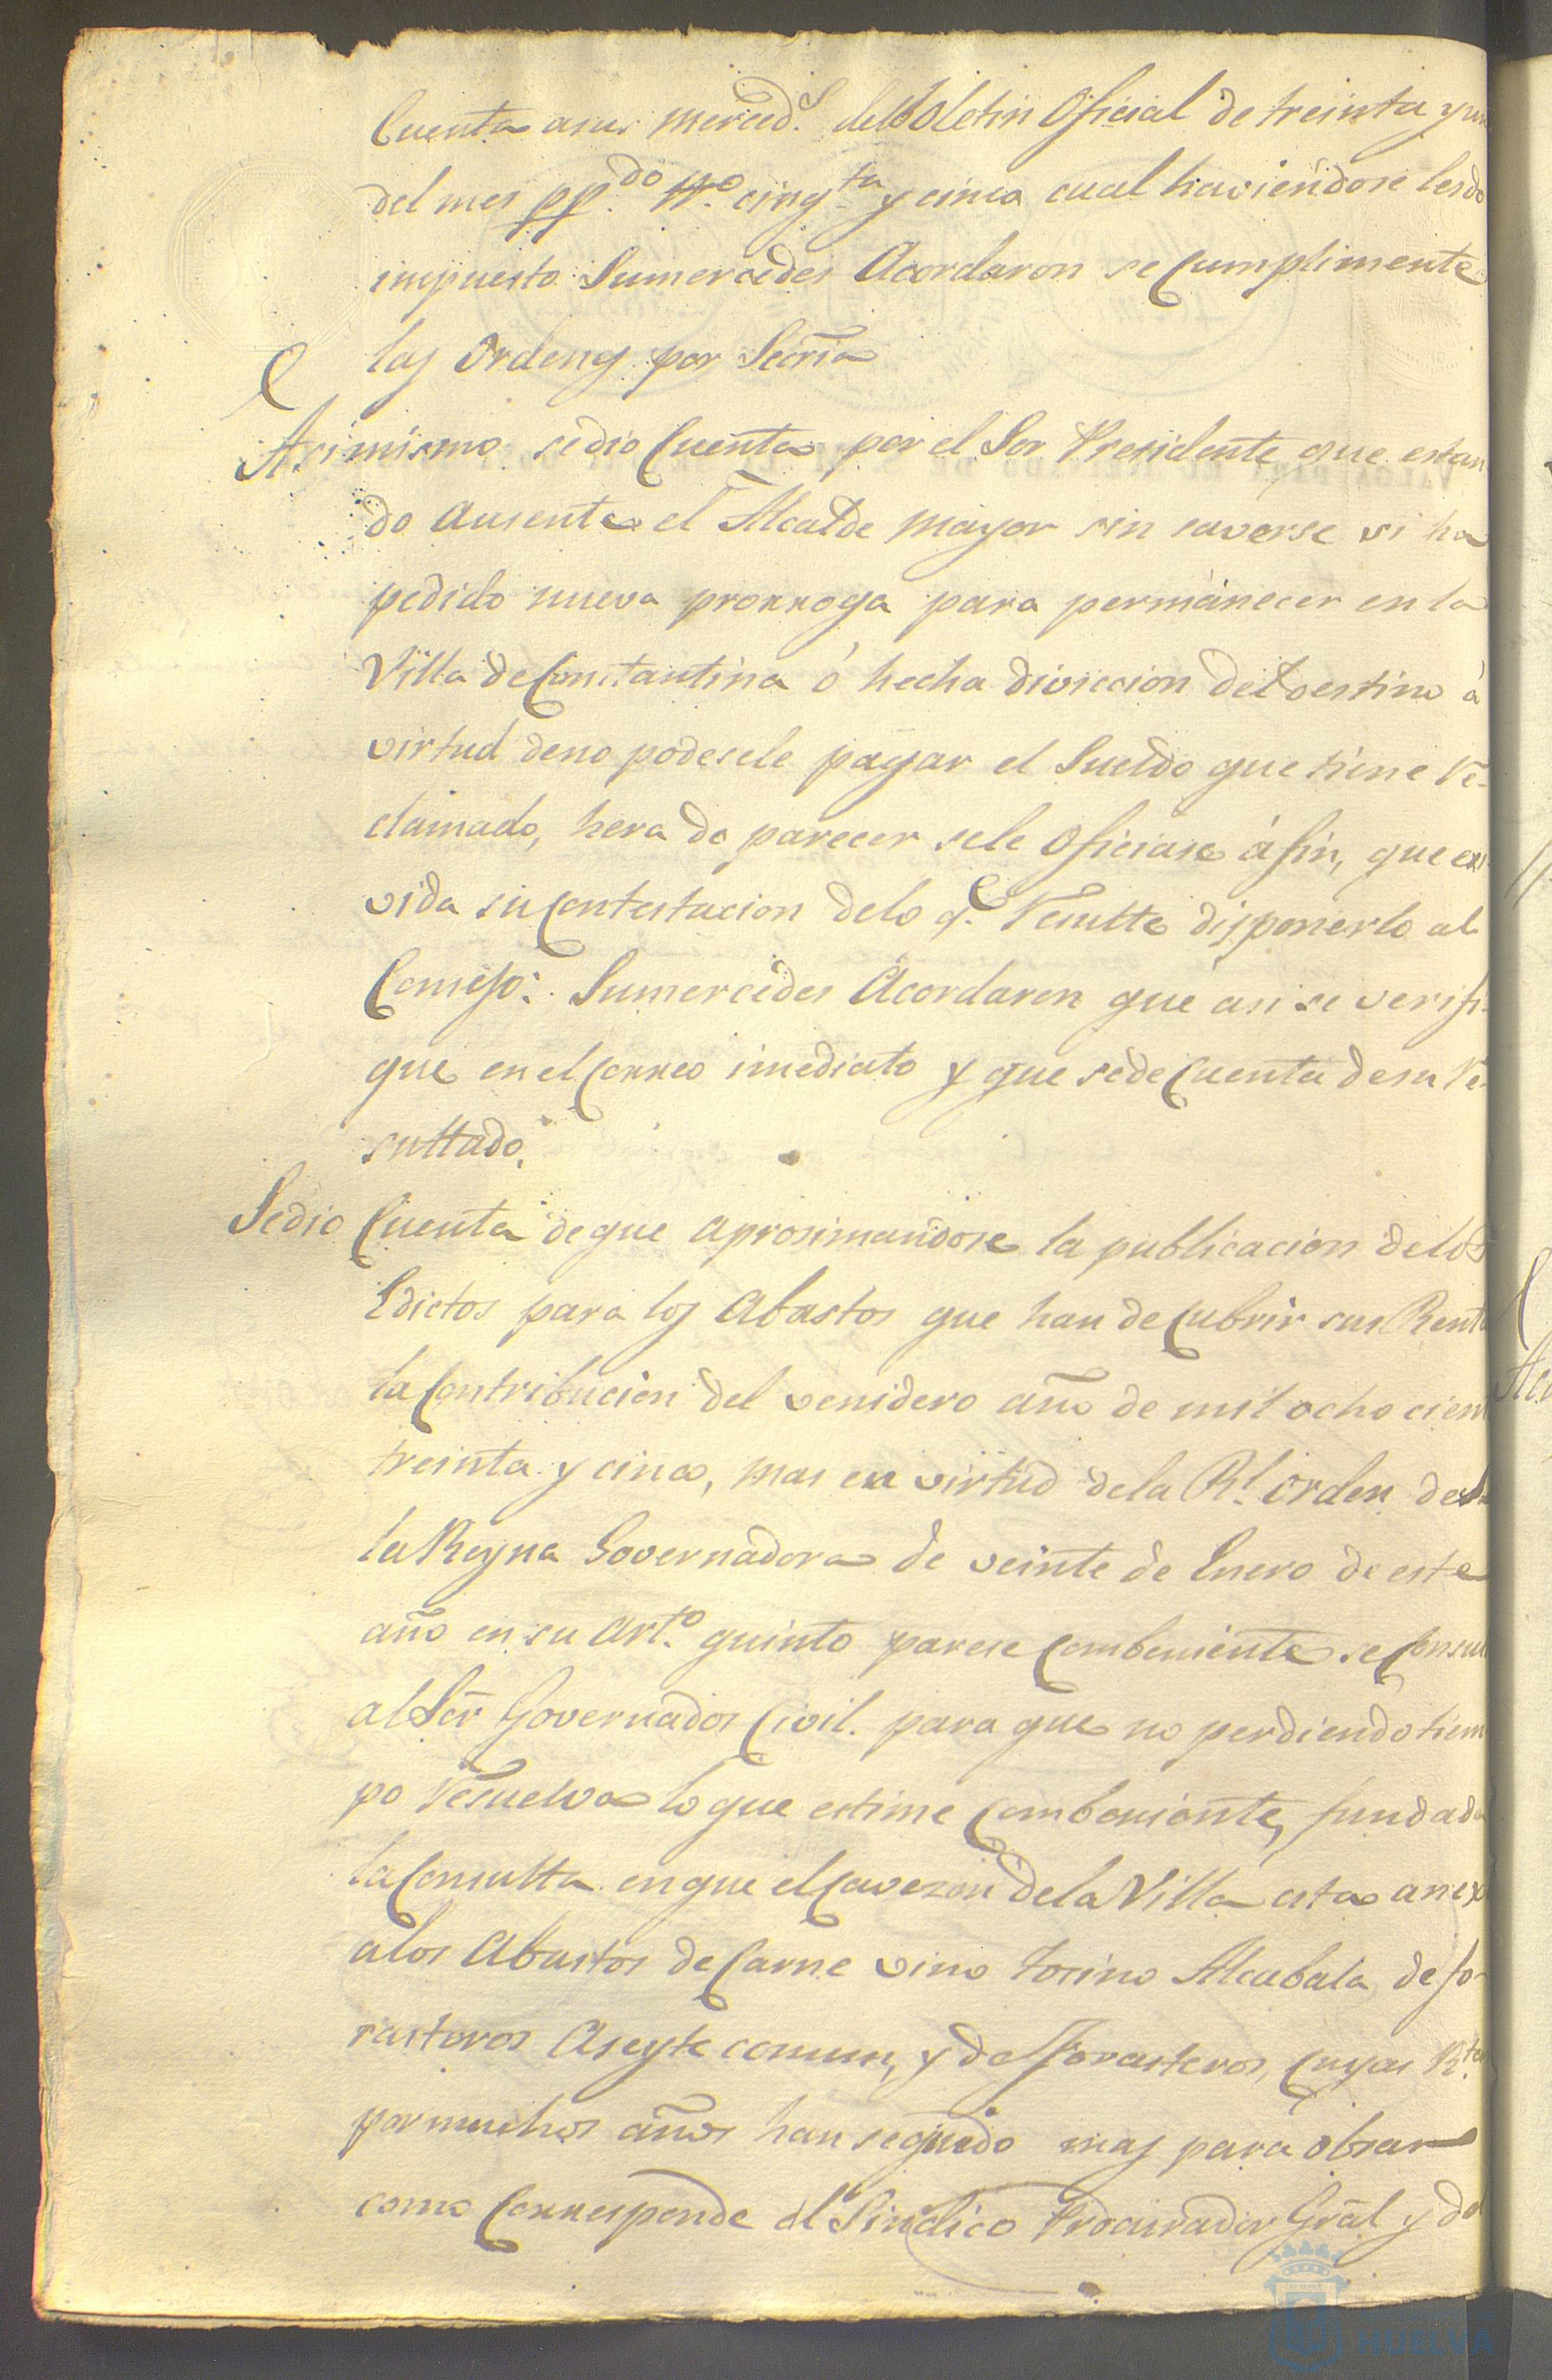 Cuenta asus merced.s del Boletin Oficial de treinta y un
del mes pp.do N.o cinq.ta y cinco cual haviendose leido
impuesto Sumercedes Acordaron se Cumplimente
las Ordens por Secria
Asimismo se dio Cuenta por el Sor Presidente que estan
do Ausente el Alcalde mayor sin saverse si ha
pedido nueva prorroga para permanecer en la
Villa de Constantina ó hecha divicion del destino á
virtud de no podersele pagar el Sueldo que tiene re-
clamado, hera de parecer se le Oficiase á fin, que en
vida su Contestacion de lo q.e resulte disponerlo al
Consejo: Sumercedes Acordaron que asi se verifi-
que en el Correo imediato y que se de Cuenta de su re-
sultado.
Se dio Cuenta de que aprosimandose la publicacion de los
Edictos para los Abastos que han de Cubrir sus Rent
la Contribucion del venidero año de mil ocho cien
treinta y cinco, mas en virtud de la Rl. orden de
la Reyna Governadora de veinte de Enero de este
año en su Art.o quinto parese Combeniente se Consul
al Señr Governador Civil. para que no perdiendo tiem
po resuelva lo que estime Combeniente, fundada
la Consulta en que el Cavezon de la Villa esta anex
a los Abastos de Carne vino tosino Alcabala de fo-
rasteros Aseyte comun, y de Forasteros, Cuyas R.tas
por muchos años han seguido mas para obrar
como Corresponde el Sindico Procurador Gral y de
HUELVA